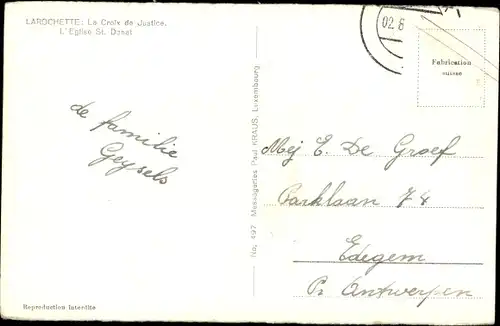 LAROCHETTE: La Croix de Justice.
L'Eglise St. Donat
02.8
Fabrication
suisse
de familie
Geysels
No. 497 Messageries Paul KRAUS, Luxembourg.
Mej E. De Groef
Parklaan 74
Edegem
Pr Antwerpen
Reproduction interdite